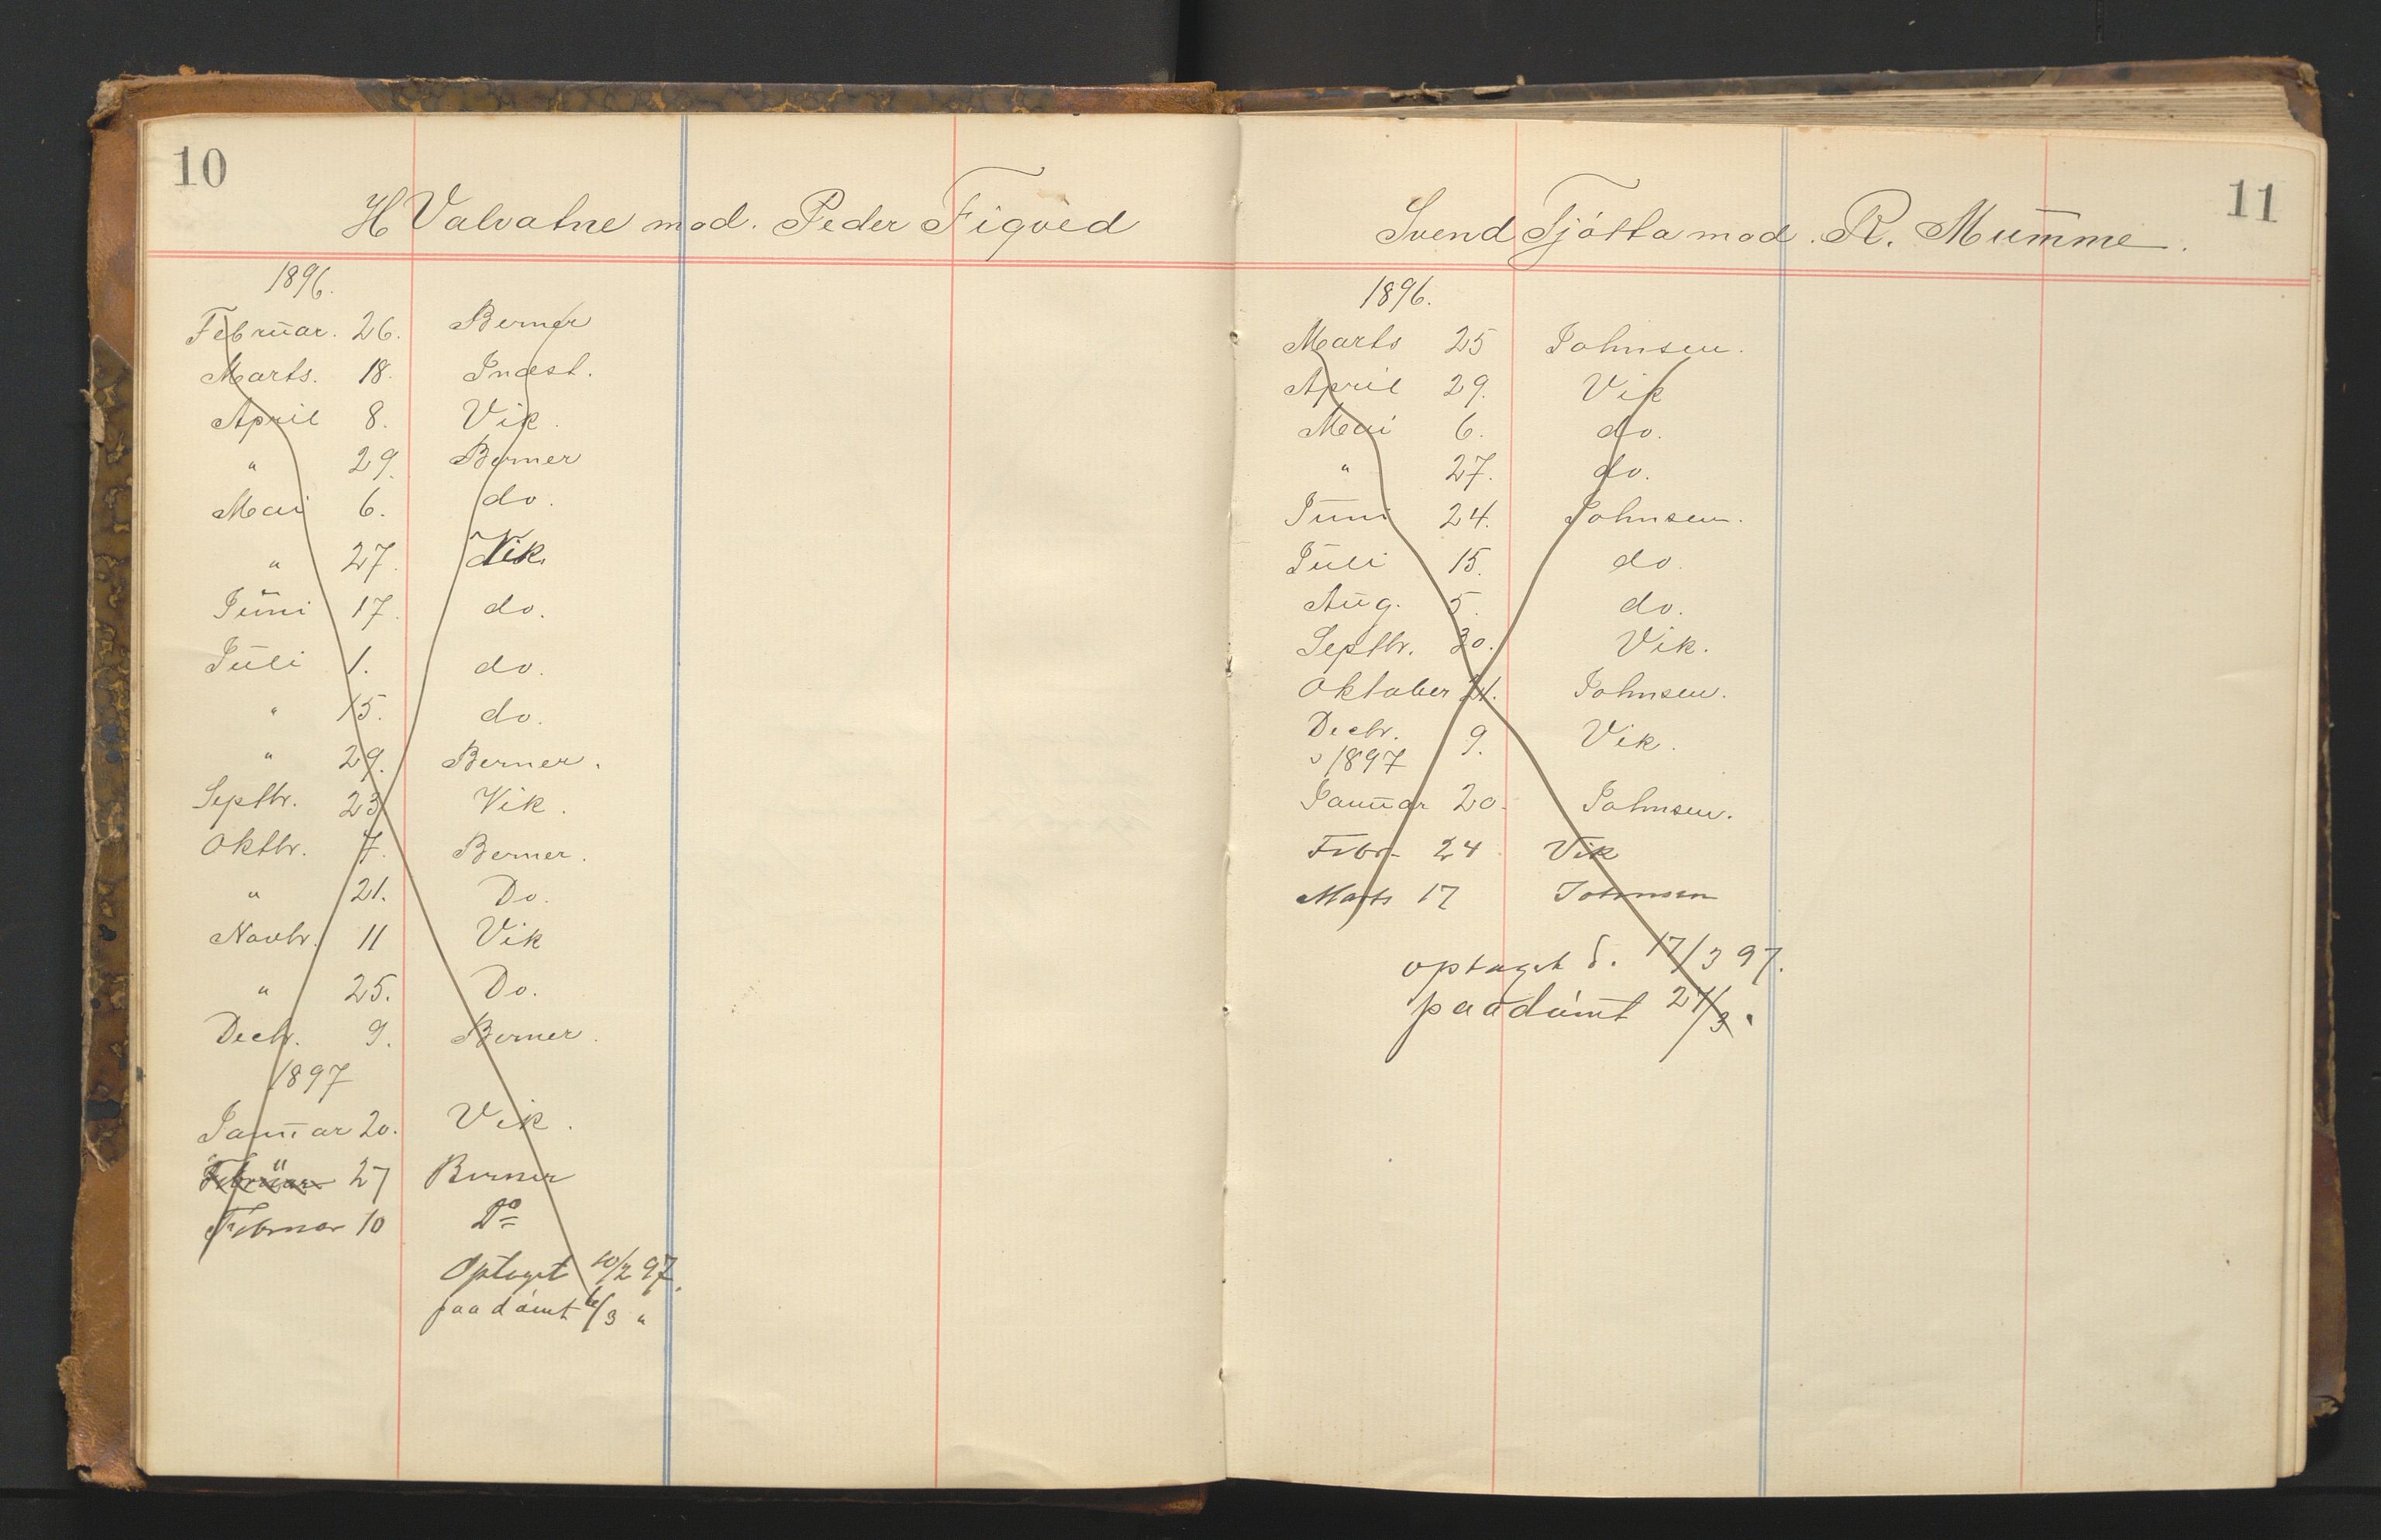 10
H Valvatne mod. Peder Figved
1896.
Februar. 26. Berner
Marts. 18. Indst.
April 8. Vik.
" 29. Berner
Mai 6. do.
" 27. Vik.
Juni 17. do.
Juli 1. do.
" 15. do.
" 29. Berner.
Septbr. 23 Vik.
Oktbr. 7. Berner.
" 21. Do.
Novbr. 11 Vik
" 25. Do.
Decbr. 9. Berner.
1897
Januar 20. Vik.
Februar 27 Berner
Februar 10 Do
Optaget 10/2 97.
paadømt /3 "
11
Svend Tjøtta mod. R. Mumme.
1896.
Marts 25 Johnsen.
April 29. Vik
Mai 6. do.
" 27. do.
Juni 24. Johnsen.
Juli 15. do.
Aug. 5. do.
Septbr. 30. Vik.
Oktober 21. Johnsen.
Decbr. 9. Vik.
1897
Januar 20. Johnsen.
Febr. 24 Vik
Marts 17 Johnsen
optaget d. 17/3 97.
paadømt 24/3 "